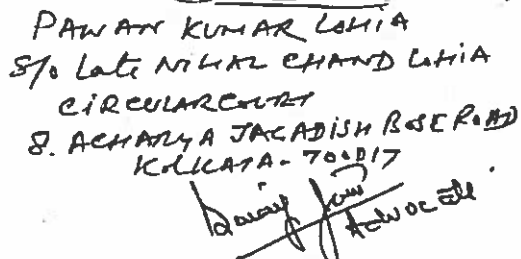 PAWAN KUMAR LOHIA
S/o Late NIHAL CHAND LOHIA
CIRCULAR COURT
8. ACHARYA JAGADISH BOSE ROAD
KOLKATA- 700017
Advocate